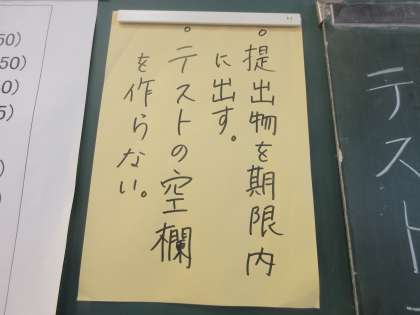 。提出物を期限内
に出す。
。テストの空欄
を作らない。
テスト
50)
50)
0)
5)
)
)